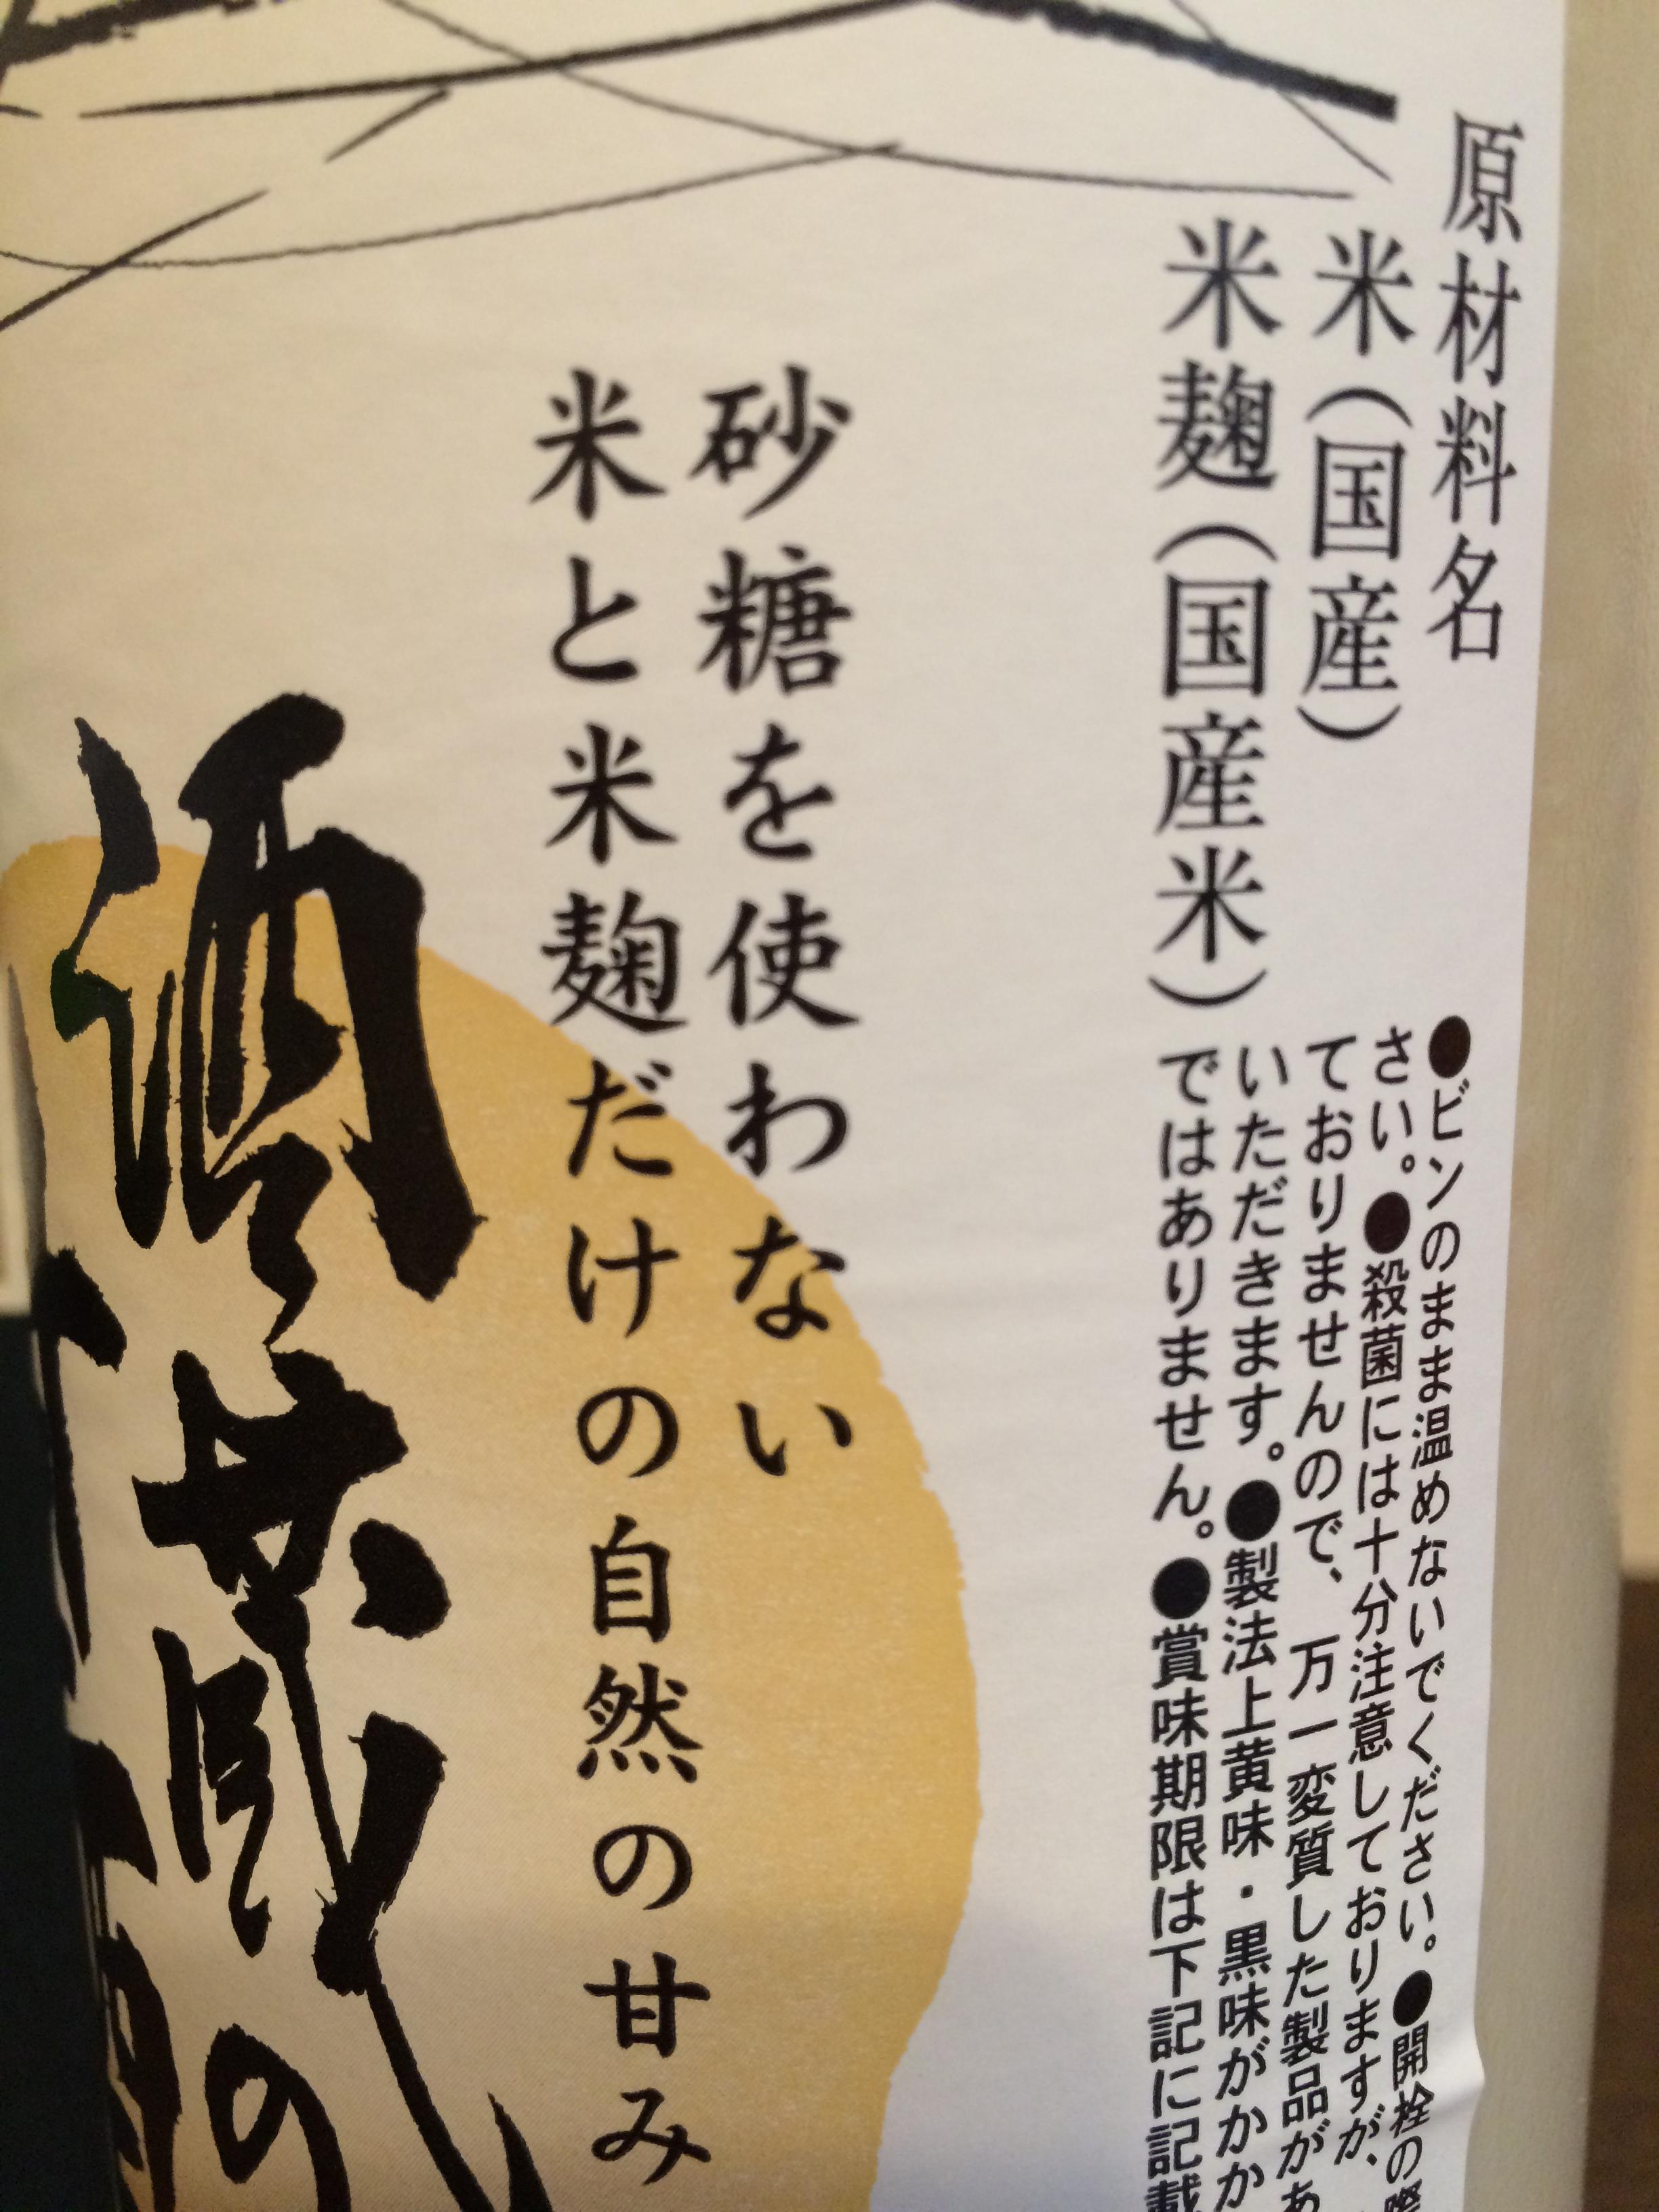 原材料名
米（国産）
米麹（国産米）
●ビンのまま温めないでください。●開栓の際
さい。●殺菌には十分注意しておりますが、
ておりませんので、万一変質した製品があ
いただきます。●製法上黄味・黒味がかか
ではありません。●賞味期限は下記に記載
砂糖を使わない
米と米麹だけの自然の甘み
酒蔵の